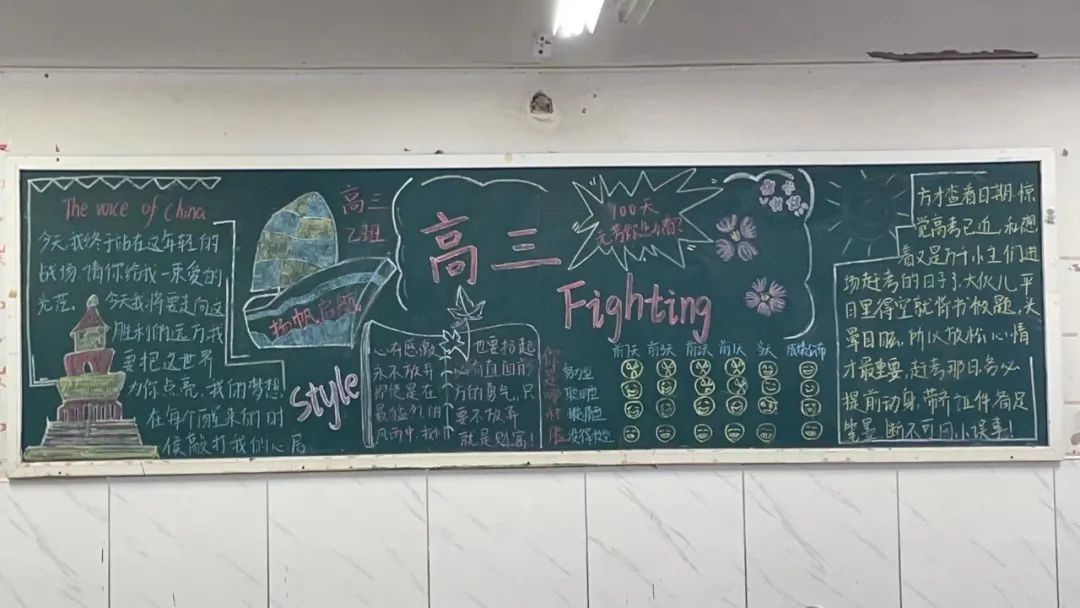 The voice of China
今天我终于站在这年轻的
战场 请你给我一束爱的
光芒。今天我将要走向这
胜利的远方,我
要把这世界
为你点亮,我们的梦想
在每个醒来的时
候敲打我的心房
高三
乙班
扬帆启航
Style
高三
心有愿激
永不放弃
即使是在
最猛烈的
风雨中,我们
也要扬起
心有直面的
方的勇气,只
要不放弃
就是财富!
100天
Fighting
前1天 前2天 前3天 前1天 当天 成绩公布
学霸型
没得救型
方才查看日期,惊
觉高考已近,私想
着又是万千小主们进
场赶考的日子了,大伙儿平
日里得空就背书做题,头
晕目眩,所以放松心情
才最重要,赶考那日务必
提前动身,带齐证件备足
笔墨,断不可因小误事!